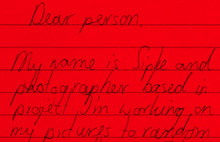 Dear person,
My name is and
photographer based in
project I'm working on
my pictures to random